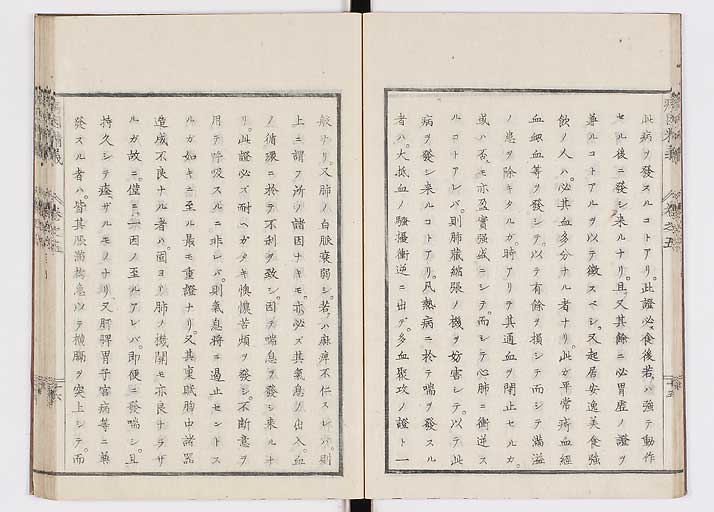 此病ヲ發スルコトアリ。此證必ズ食後若クハ強テ動作
セル後ニ發シ来ルナリ。且又其餘ニ必胃虚ノ證ヲ
兼ルコトアルヲ以テ徴スベシ。又起居安逸美食強
飲ノ人ハ。必其血多分ナル者ナリ。此ガ平常痔血經
血衂血等ヲ發シテ。以テ有餘ヲ損シテ而シテ滿溢
ノ患ヲ除キタルガ。時アリテ其通血ヲ閉止セルカ。
或ハ否ルモ亦盈實強盛ニシテ。而シテ心肺ニ衝逆ス
ルコトアレバ。則肺臓縮張ノ機ヲ妨害シテ。以テ此
病ヲ發シ来ルコトアリ。凡熱病ニ於テ喘ヲ發スル
者ハ。大抵血ノ騷擾衝逆ニ出ヅ。多血聚攻ノ證ト一
般ナリ。又肺ノ白脈衰弱シ。若クハ麻痺不仁スレバ。則
上ニ謂フ所ノ諸因ナキモ。亦必ズ其氣息ノ出入。血
ノ循環ニ於テ不利ヲ致シ。因テ喘息ヲ發シ来ルナ
リ。此證必ズ耐ヘガタキ懊憹苦煩ヲ發シ。不断意ヲ
用テ呼吸スルニ非レバ。則氣息將ニ遏止セントス
ルガ如キニ至ル最モ重證ナリ。又其稟賦胸中諸器
造成不良ナル者ハ。固ヨリ肺ノ機關モ亦良ナラザ
ルガ故ニ。僅ニ一因ノ至ルアレバ。即便ニ發喘シ。且
持久シテ痊ザルモノナリ。又肝脾胃子宮病等ニ兼
發スル者ハ。皆其脹滿拘急以テ横膈ヲ突上シテ。而